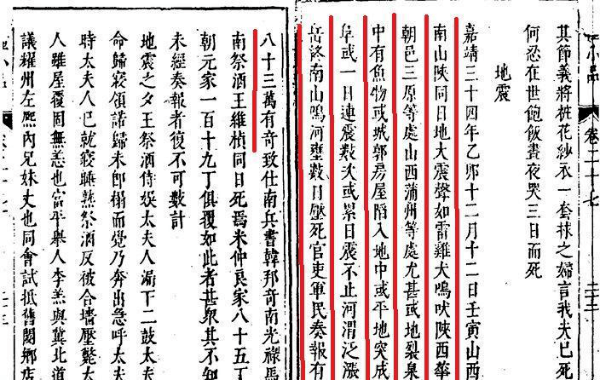 小品
其節義將桩花紗衣一套抹之婦言我夫已死
何忍在世飽飯晝夜哭三日而死
地震
嘉靖三十四年乙夘十二月十二日壬寅山西
南山陝同日地大震聲如雷雞犬鳴吠陝西華
朝邑三原等處山西蒲州等處尤甚或地裂泉
中有魚物或城郭房屋陷入地中或平地突成
阜或一日連震數次或累日震不止河渭泛漲
岳終南山鳴河壅數日壓死官吏軍民奏報有
八十三萬有奇致仕南兵書韓邦奇南光祿馬
南祭酒王維楨同日死焉米仲良家八十五丁
朝元家一百十九丁俱覆如此者甚眾其不知
未經奏報者復不可數計
地震之夕王祭酒侍娱太夫人漏下二鼓太夫
命歸寢領諾歸未即榻而覺乃奔出急呼太夫
時太夫人已就寢睡熟祭酒反被合墻壓斃太
人雖屋覆固無恙也富平舉人李羔與冀北道
議耀州左熈內兄妹丈也同會試抵舊閿鄉店
卷二十七